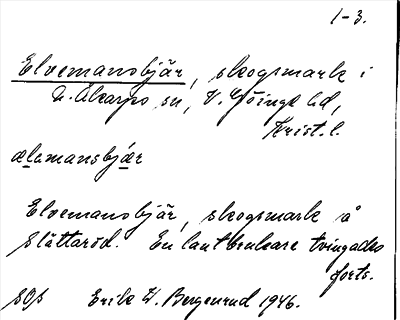 1-3.
Elvemansbjär, skogsmark i
N. Åkarps sn, V. Göinge hd,
Krist. l.
ælamansbjær
Elvemansbjär, skogsmark å
Slättaröd. En lantbrukare tvingades
forts.
SOS Erik W. Bergenrud 1946.